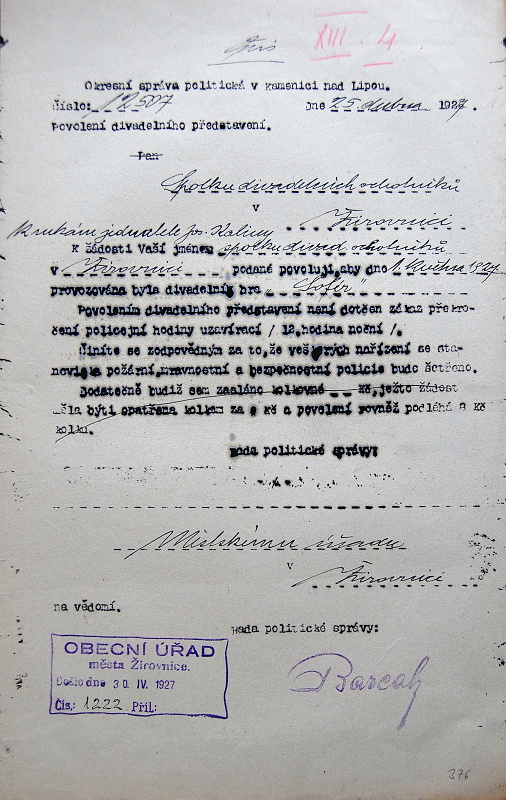 XIII. 4.
Okresní správa politická v Kamenici nad Lipou.
Číslo: 12507 Dne 25. dubna 1927.
Povolení divadelního představení.
Pan
Spolku divadelních ochotníků
v Žirovnici
K rukám jednatele Jos. Kaliny
K žádosti Vaší jménem spolku divad. ochotníků
v Žirovnici podané povoluji, aby dne 1. května 1927
provozována byla divadelní hra "Šofér"
Povolením divadelního představení není dotčen zákaz překro-
čení policejní hodiny uzavírací / 12. hodina noční /.
Činíte se zodpovědným za to, že veškerých nařízení se sta-
noviska požární, mravnostní a bezpečnostní policie bude šetřeno.
Dodatečně budiž sem zasláno kolkovné Kč, ježto žádost
měla býti opatřena kolkem za 8 Kč a povolení rovněž podléhá 8 Kč
kolku.
Rada politické správy:
Městskému úřadu
v Žirovnici
na vědomí.
Rada politické správy:
OBECNÍ ÚŘAD
města Žirovnice.
Došlo dne 30. IV. 1927
Čís.: 1222 Příl.:
376